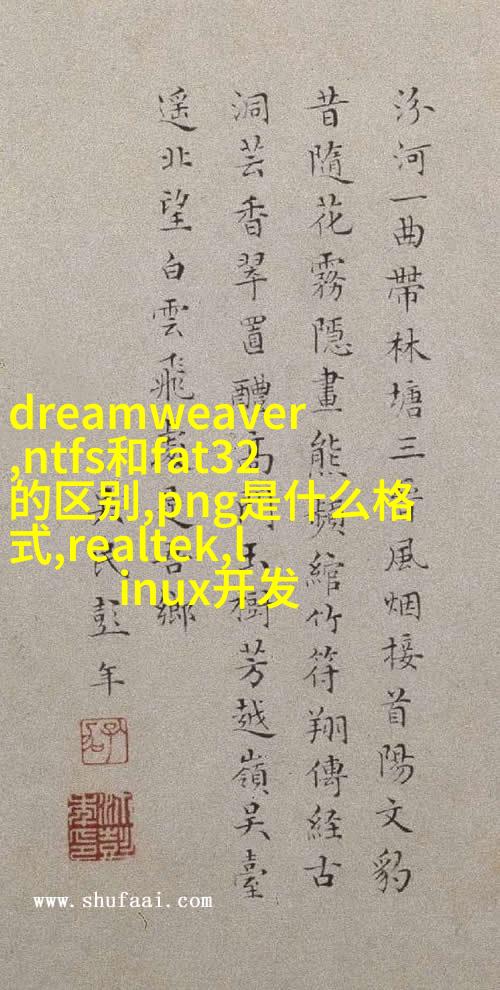 汾河一曲帶林塘三風烟接首陽文豹
昔隨花霧隱畫熊頻綰竹符翔傳経古
洞芸香翠置醴高玉樹芳越嶺吴臺
遥北望白雲飛處是鄉
民彭年
dreamweaver
,ntfs和fat32
的区别,png是什么格
式,realtek,l
inux开发
www.shufaai.com